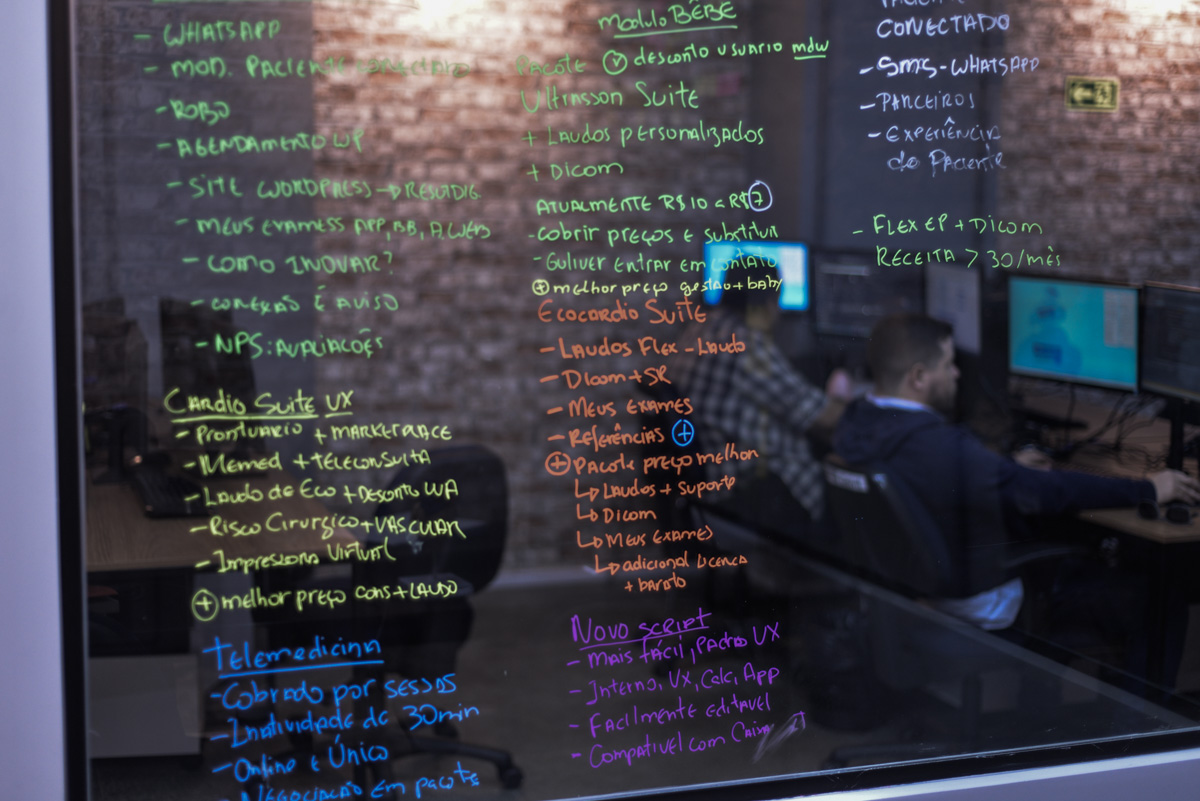 - WHATSAPP
- MOD. PACIENTE CONECTADO
- ROBO
- AGENDAMENTO WP
- SITE WORDPRESS → RESULDIG.
- MEUS EXAMESS APP, BB, A.WEB
- COMO INOVAR?
- CONEXÃO É AVISO
- NPS: AVALIAÇÕES
CARDIO SUITE UX
- Prontuário + MARKETPLACE
- Memed + TELECONSULTA
- Laudo de Eco + Desconto WA
- Risco Cirurgico + VASCULAR
- Impressora Virtual
⊕ melhor preço cons + LAUDO
Telemedicina
- Cobrado por sessos
- Inatividade de 30min
- Online e Único
- Negociação em pacote
Modulo BÊBE
PACOTE ✓ desconto usuario mdw
Ultrasson Suite
+ Laudos personalizados
+ Dicom
ATUALMENTE R$ 10 a R$ 7
- Cobrir preços e substituir
- Guliver entrar em contato
⊕ melhor preço gestão + baby
Ecocardio Suite
- Laudos Flex - Laudo
- Dicom + SR
- Meus Exames
- Referências ⊕
⊕ Pacote preço melhor
↳ Laudos + Suporte
↳ Dicom
↳ Meus Exames
↳ adicional licença
+ barato
Novo script
- Mais fácil, Padrão UX
- Interno, UX, Calc, App
- Facilmente editável
- Compativel com
CONECTADO
- SMS - WHATSAPP
- PARCEIROS
- EXPERIÊNCIA
do Paciente
- FLEX EP + Dicom
RECEITA > 30/mês